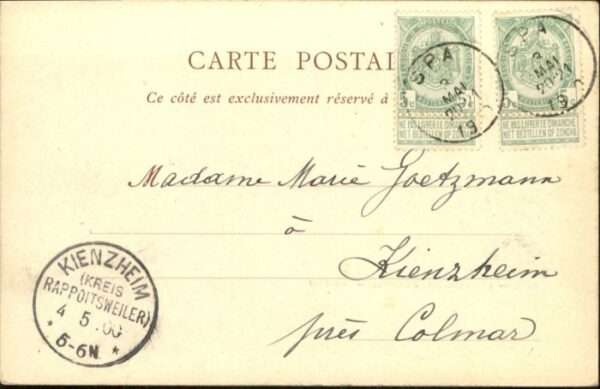 CARTE POSTAL
Ce côté est exclusivement réservé à
SPA
MAI
20-21
19
5c
NE PAS LIVRER LE DIMANCHE
NIET BESTELLEN OP ZONDAG
SPA
MAI
20-21
19
5c
NE PAS LIVRER LE DIMANCHE
NIET BESTELLEN OP ZONDAG
Madame Marie Goetzmann
à
Kienzheim
près Colmar
KIENZHEIM
(KREIS
RAPPOLTSWEILER)
4 5 00
* 5-6N. *